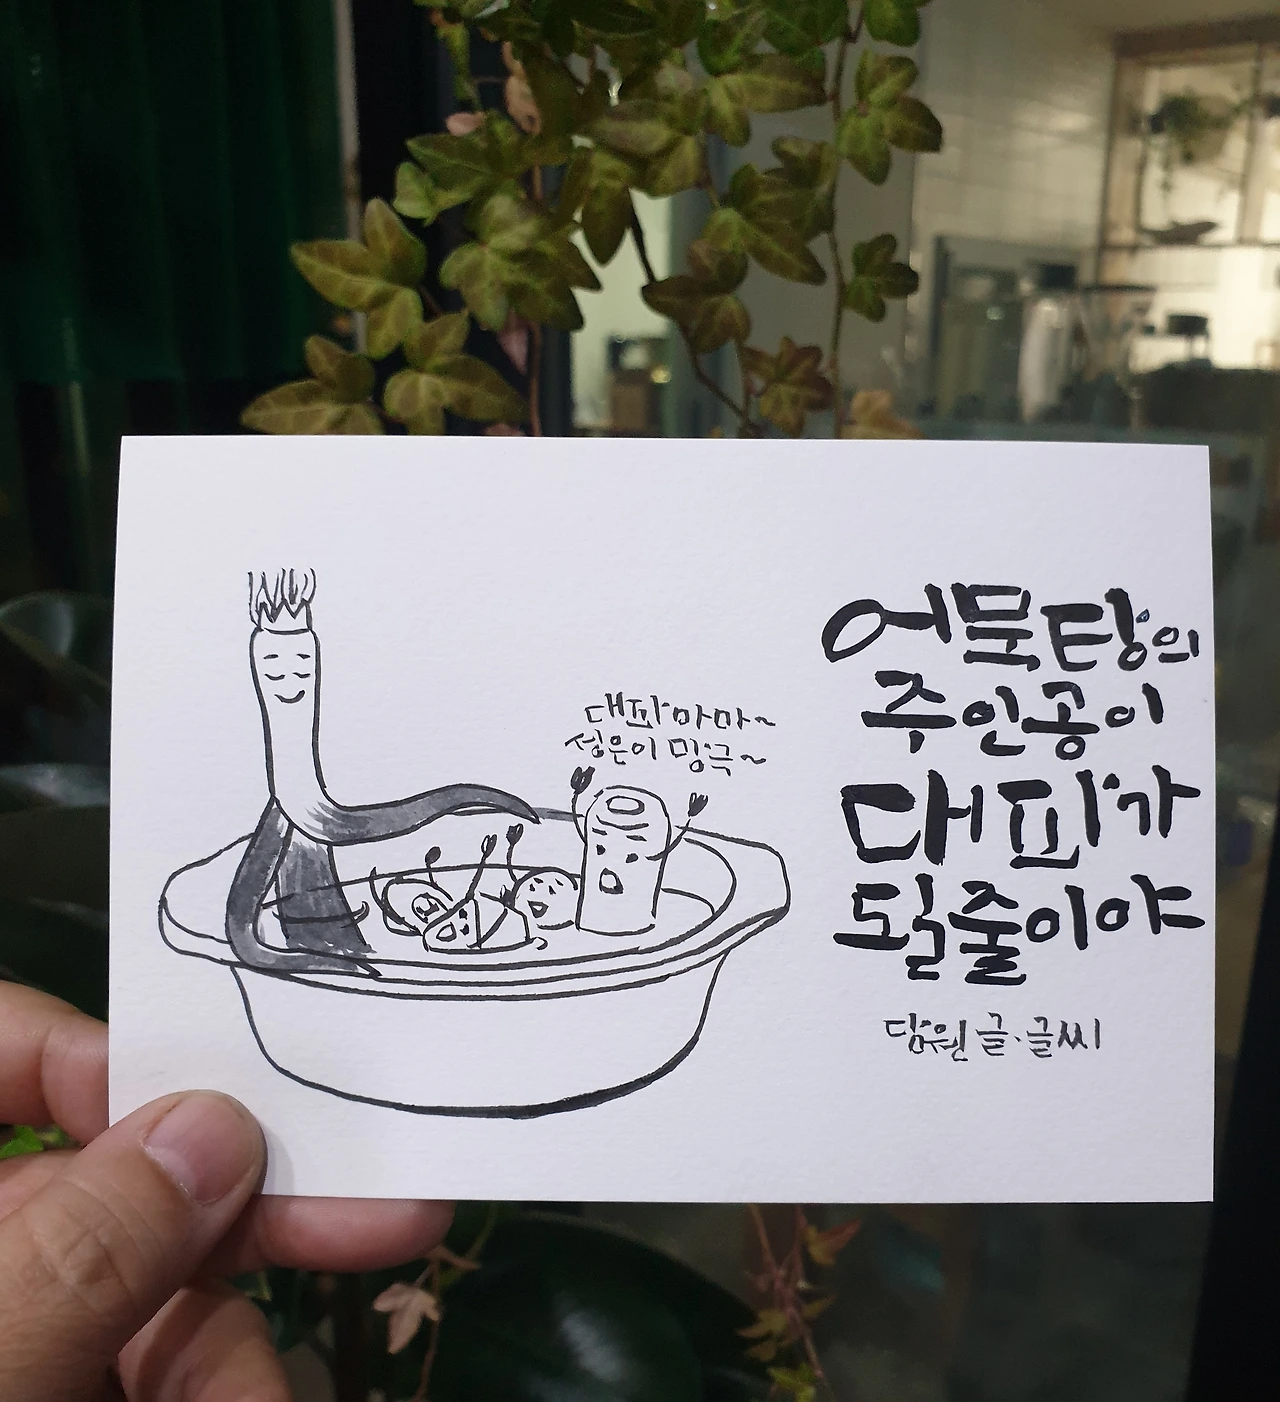 대파마마~
성은이 망극~
어묵탕의
주인공이
대파가
될줄이야
담원 글·글씨